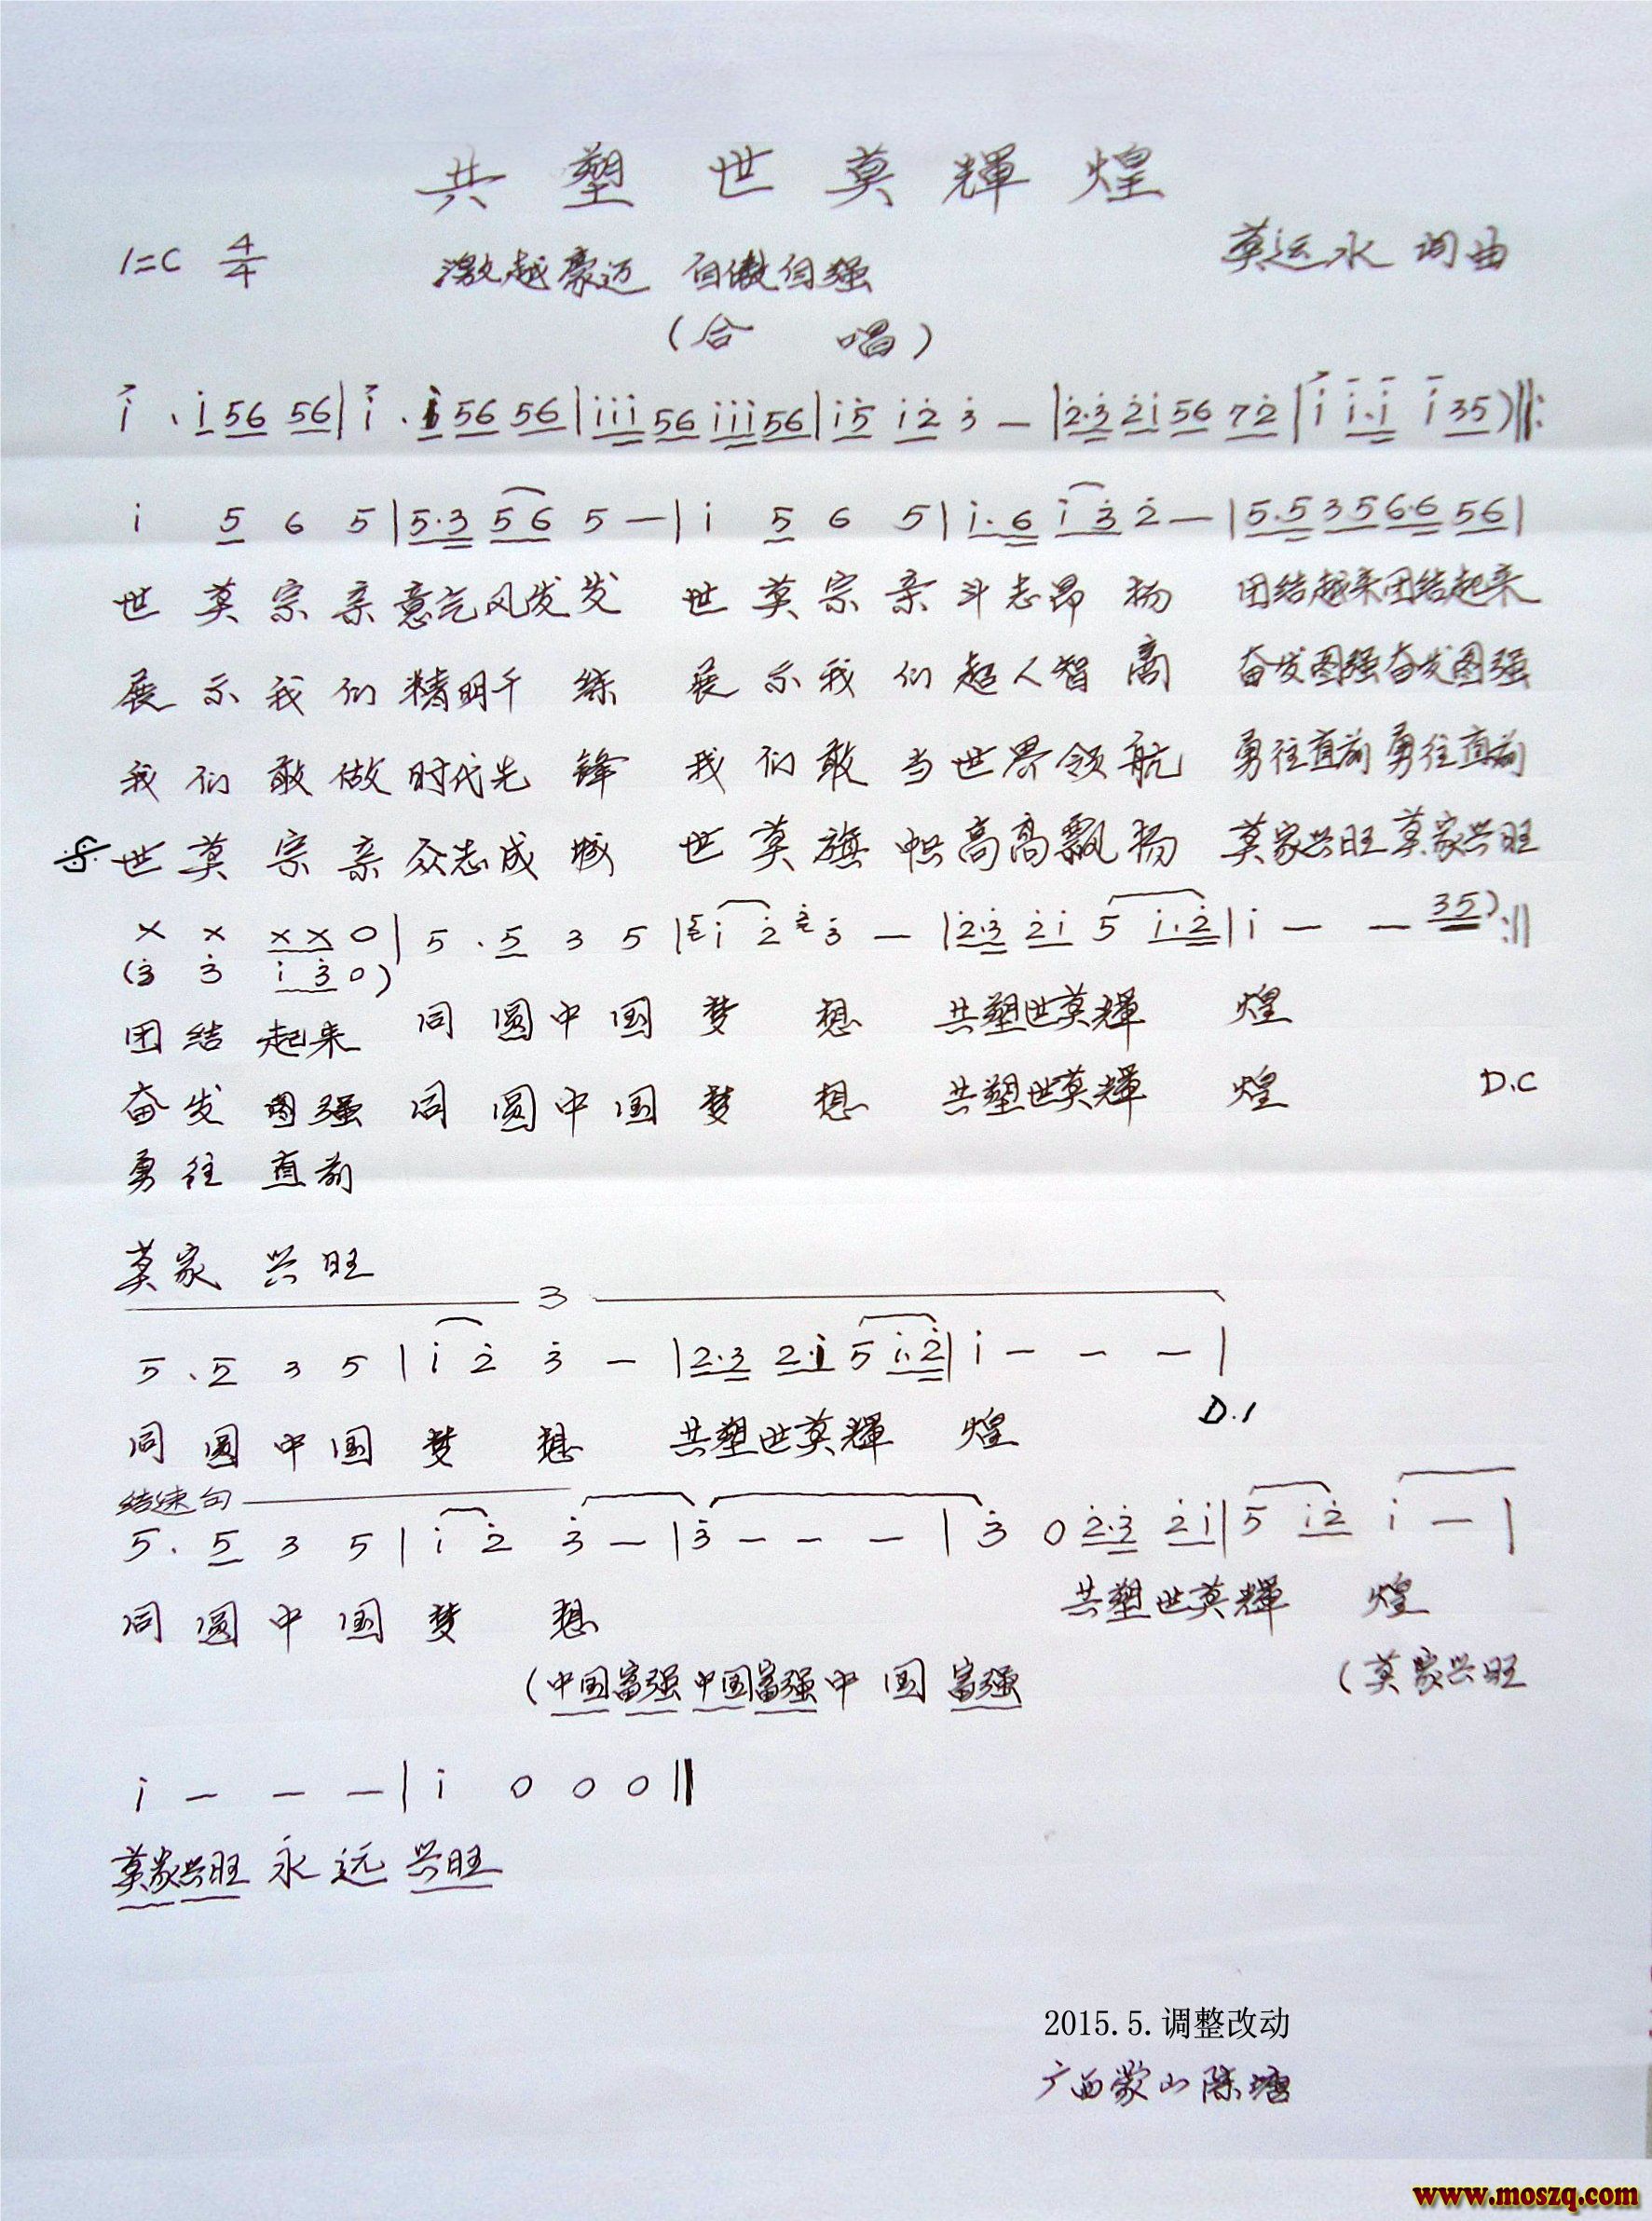 共塑世莫輝煌
1=C 4/4 激越豪迈 自傲自强 莫运水 词曲
(合 唱)
i . i 56 56 | i . i 56 56 | iii 56 iii 56 | i5 i2 3 — | 2·3 2i 56 72 | i i·i i 35 ) ‖:
i 5 6 5 | 5·3 56 5 — | i 5 6 5 | i·6 i3 2 — | 5·5 35 6·6 56 |
世莫宗亲意气风发发 世莫宗亲斗志昂扬 团结越来团结起来
展示我们精明干练 展示我们超人智商 奋发图强奋发图强
我们敢做时代先锋 我们敢当世界领航 勇往直前勇往直前
世莫宗亲众志成城 世莫旗帜高高飘扬 莫家兴旺莫家兴旺
x x xx 0 | 5 . 5 3 5 | i 2 3 — | 2·3 2i 5 i·2 | i — — 35) :‖
(3 3 i3 0)
团结起来 同圆中国梦想 共塑世莫輝煌
奋发图强 同圆中国梦想 共塑世莫輝煌 D.C
勇往直前
莫家兴旺
3
5 . 5 3 5 | i 2 3 — | 2·3 2·i 5 i·2 | i — — — |
D.1
同圆中国梦想 共塑世莫輝煌
结速句
5 . 5 3 5 | i 2 3 — | 3 — — — | 3 0 2·3 2i | 5 i2 i — |
同圆中国梦想 共塑世莫輝煌
(中国富强中国富强中国富强 (莫家兴旺
i — — — | i 0 0 0 ‖
莫家兴旺永远兴旺
2015.5.调整改动
广西蒙山陈塘
www.moszq.com